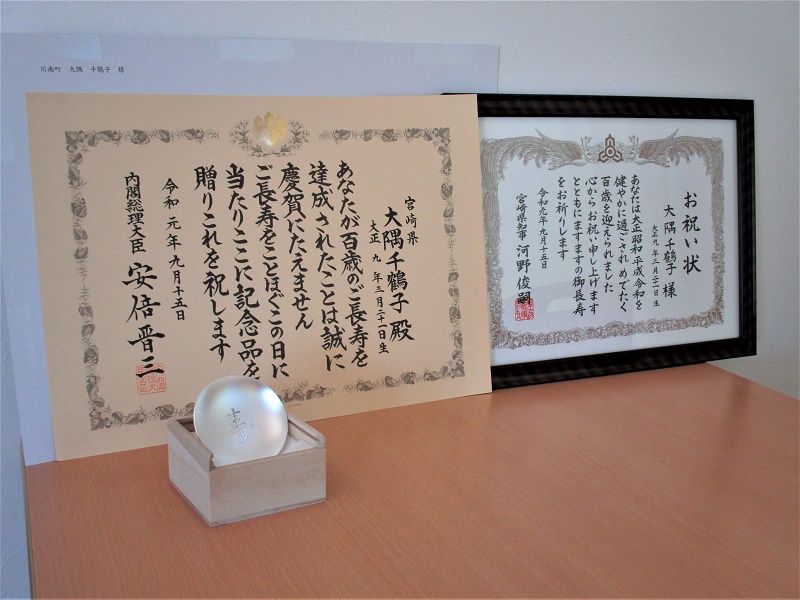 川南町 大隅 千鶴子 様
宮崎県
大隅千鶴子殿
大正 九 年三月二十一日生
あなたが百歳のご長寿を
達成されたことは誠に
慶賀にたえません
ご長寿をことほぐこの日に
当たりここに記念品を
贈りこれを祝します
令和 元年 九月十五日
内閣総理大臣 安倍晋三
お祝い状
大隅千鶴子 様
大正九年三月二十一日生
あなたは大正昭和平成令和を
健やかに過ごされめでたく
百歳を迎えられました
心からお祝い申し上げます
とともにますますの御長寿
をお祈りします
令和元年九月十五日
宮崎県知事 河野俊嗣
寿